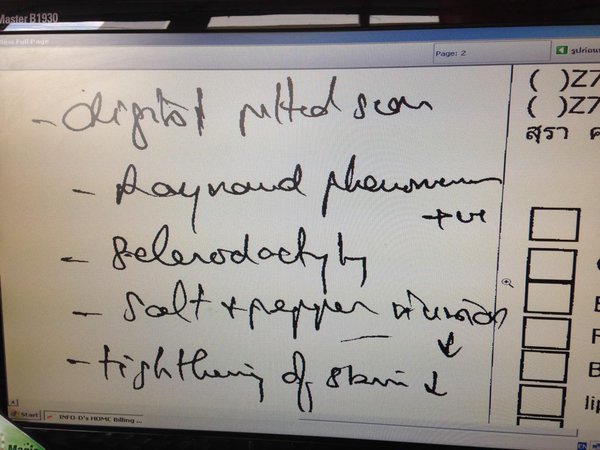 Master B1930
View Full Page
Page: 2
- digital pitted scar
( )Z7
( )Z7
สุรา ค
- Raynaud phenomenon
+ve
- Sclerodactyly
- salt + pepper
↓
- tightening of skin ↓
lip
Start
INFO-D's HOMC Billing ...
EN